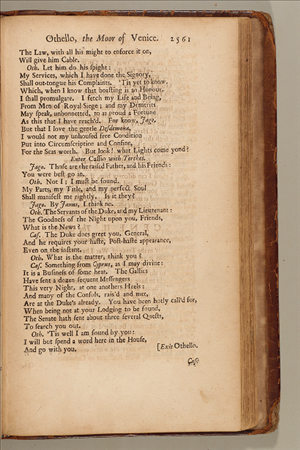 Othello, the Moor of Venice. 2561
The Law, with all his might to enforce it on,
Will give him Cable.
Oth. Let him do his spight:
My Services, which I have done the Signory,
Shall out-tongue his Complaints. 'Tis yet to know,
Which, when I know that boasting is an Honour,
I shall promulgate. I fetch my Life and Being,
From Men of Royal Siege; and my Demerits
May speak, unbonnetted, to as proud a Fortune
As this that I have reach'd. For know, Jago,
But that I love the gentle Desdemona,
I would not my unhoused free Condition
Put into Circumscription and Confine,
For the Seas worth. But look! what Lights come yond?
Enter Cassio with Torches.
Jago. Those are the raised Father, and his Friends:
You were best go in.
Oth. Not I; I must be found.
My Parts, my Title, and my perfect Soul
Shall manifest me rightly. Is it they?
Jago. By Janus, I think no.
Oth. The Servants of the Duke, and my Lieutenant:
The Goodness of the Night upon you, Friends,
What is the News?
Cas. The Duke does greet you, General,
And he requires your haste, Post-haste appearance,
Even on the instant.
Oth. What is the matter, think you?
Cas. Something from Cyprus, as I may divine:
It is a Business of some heat. The Gallies
Have sent a dozen sequent Messengers
This very Night, at one anothers Heels:
And many of the Consuls, rais'd and met,
Are at the Duke's already. You have been hotly call'd for,
When being not at your Lodging to be found,
The Senate hath sent about three several Quests,
To search you out.
Oth. 'Tis well I am found by you:
I will but spend a word here in the House,
And go with you. [Exit Othello.
Cas.